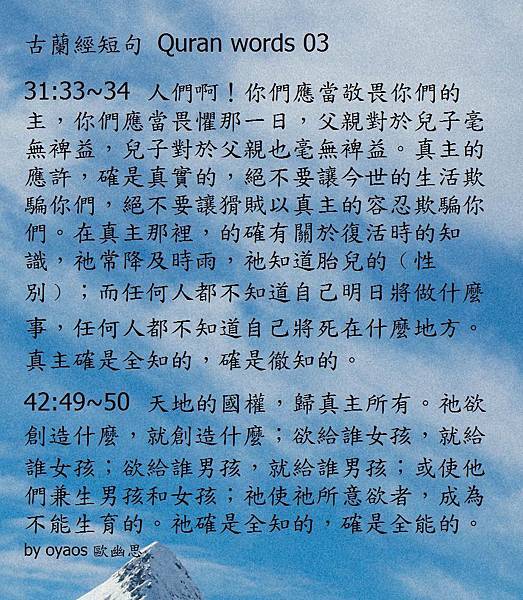 古蘭經短句 Quran words 03
31:33~34 人們啊！你們應當敬畏你們的
主，你們應當畏懼那一日，父親對於兒子毫
無裨益，兒子對於父親也毫無裨益。真主的
應許，確是真實的，絕不要讓今世的生活欺
騙你們，絕不要讓猾賊以真主的容忍欺騙你
們。在真主那裡，的確有關於復活時的知
識，祂常降及時雨，祂知道胎兒的（性
別）；而任何人都不知道自己明日將做什麼
事，任何人都不知道自己將死在什麼地方。
真主確是全知的，確是徹知的。
42:49~50 天地的國權，歸真主所有。祂欲
創造什麼，就創造什麼；欲給誰女孩，就給
誰女孩；欲給誰男孩，就給誰男孩；或使他
們兼生男孩和女孩；祂使祂所意欲者，成為
不能生育的。祂確是全知的，確是全能的。
by oyaos 歐幽思